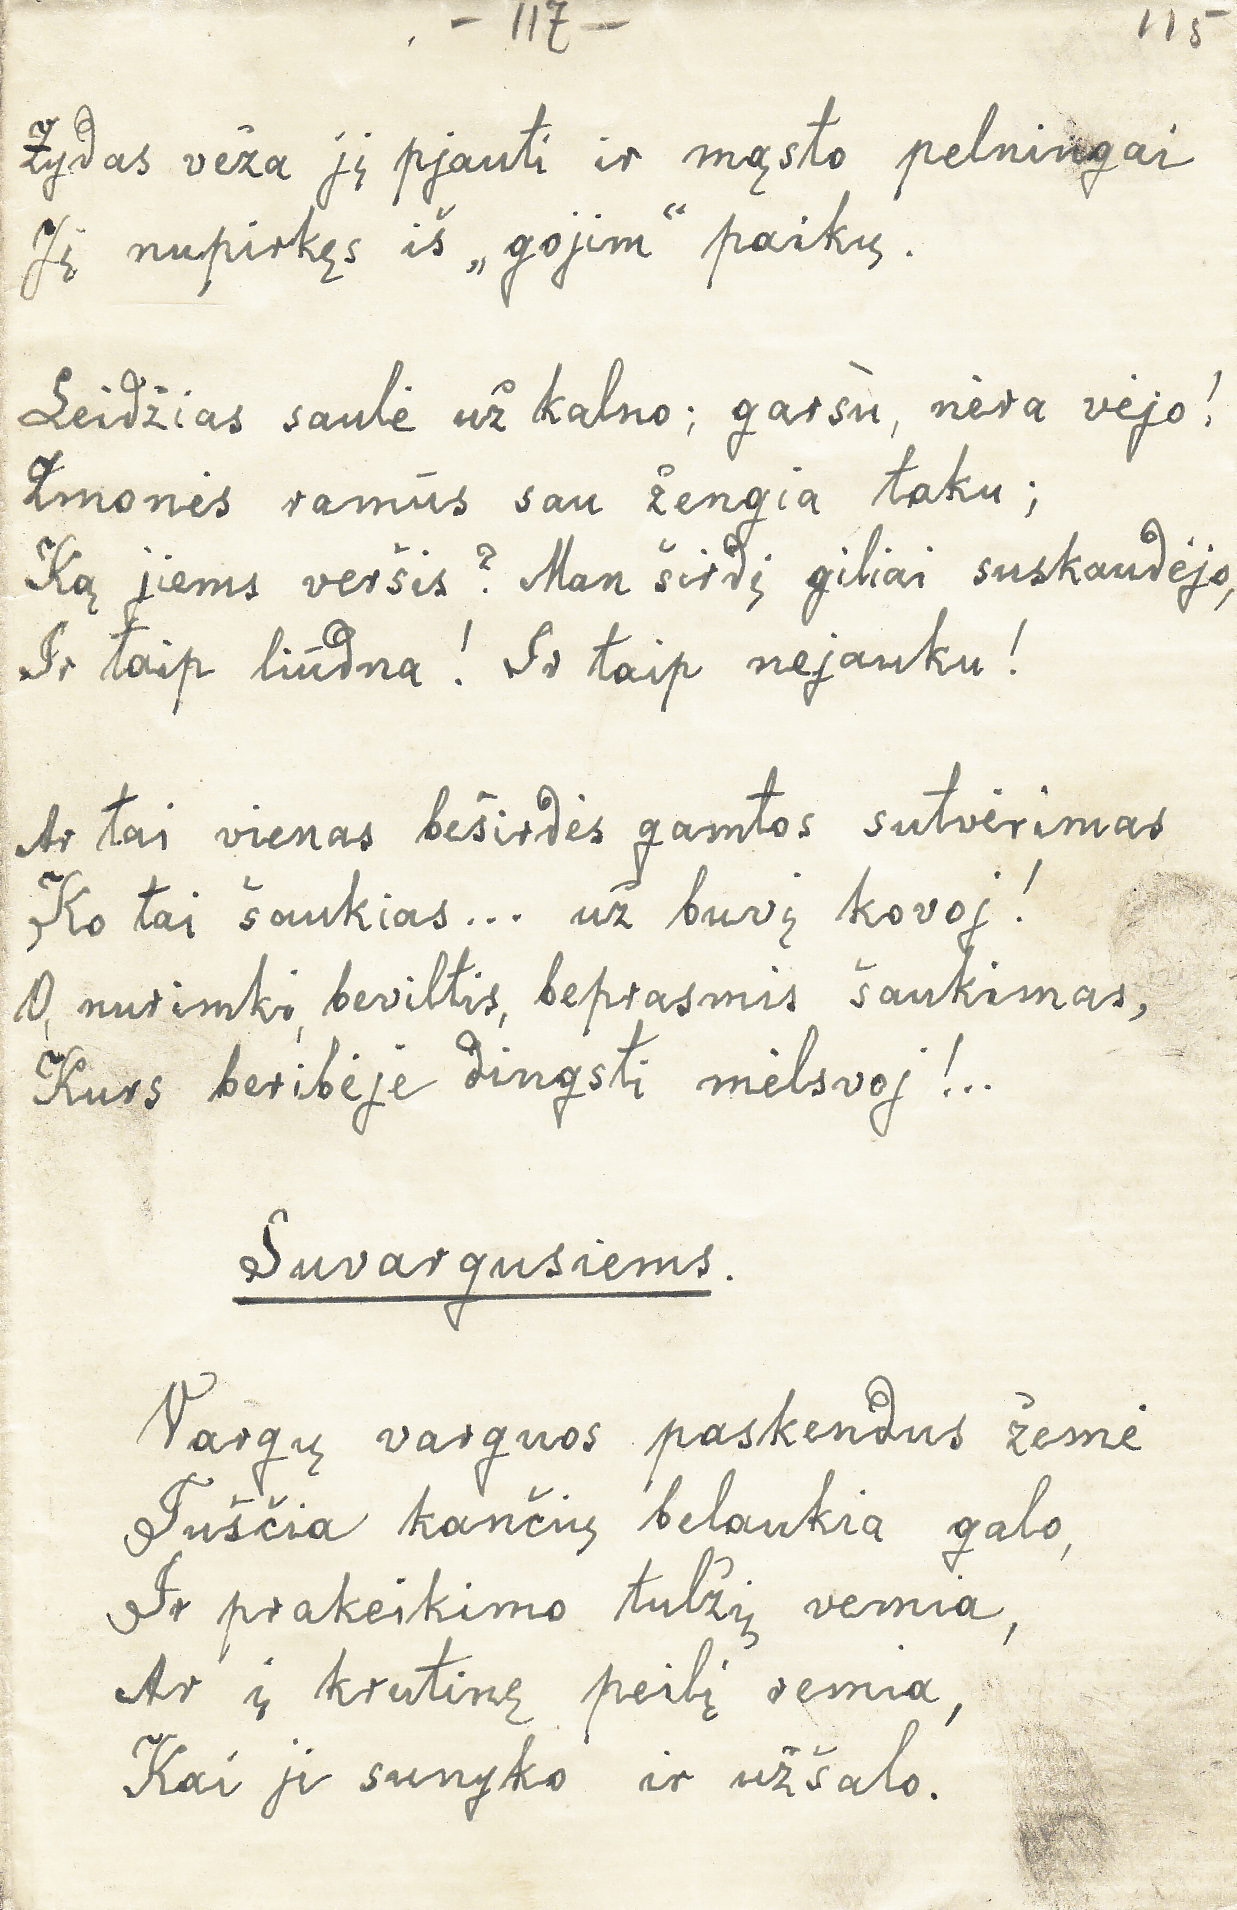 - 117 -
115
Žydas veža jį pjauti ir mąsto pelningai
Jį nupirkęs iš „gojim“ paikų.
Leidžias saulė už kalno; garsu, nėra vėjo!
Žmonės ramūs sau žengia taku;
Ką jiems veršis? Man širdį giliai suskaudėjo,
Ir taip liūdna! Ir taip nejauku!
Ar tai vienas beširdės gamtos sutvėrimas
Ko tai šaukias... už buvį kovoj!
O, nurimki, beviltis, beprasmis šaukimas,
Kurs beribėje dingsti mėlsvoj!..
Suvargusiems.
Vargų varguos paskendus žemė
Tuščia kančių belaukia galo,
Ir prakeikimo tulžių vemia,
Ar į krutinę peilį remia,
Kai ji sunyko ir užšalo.